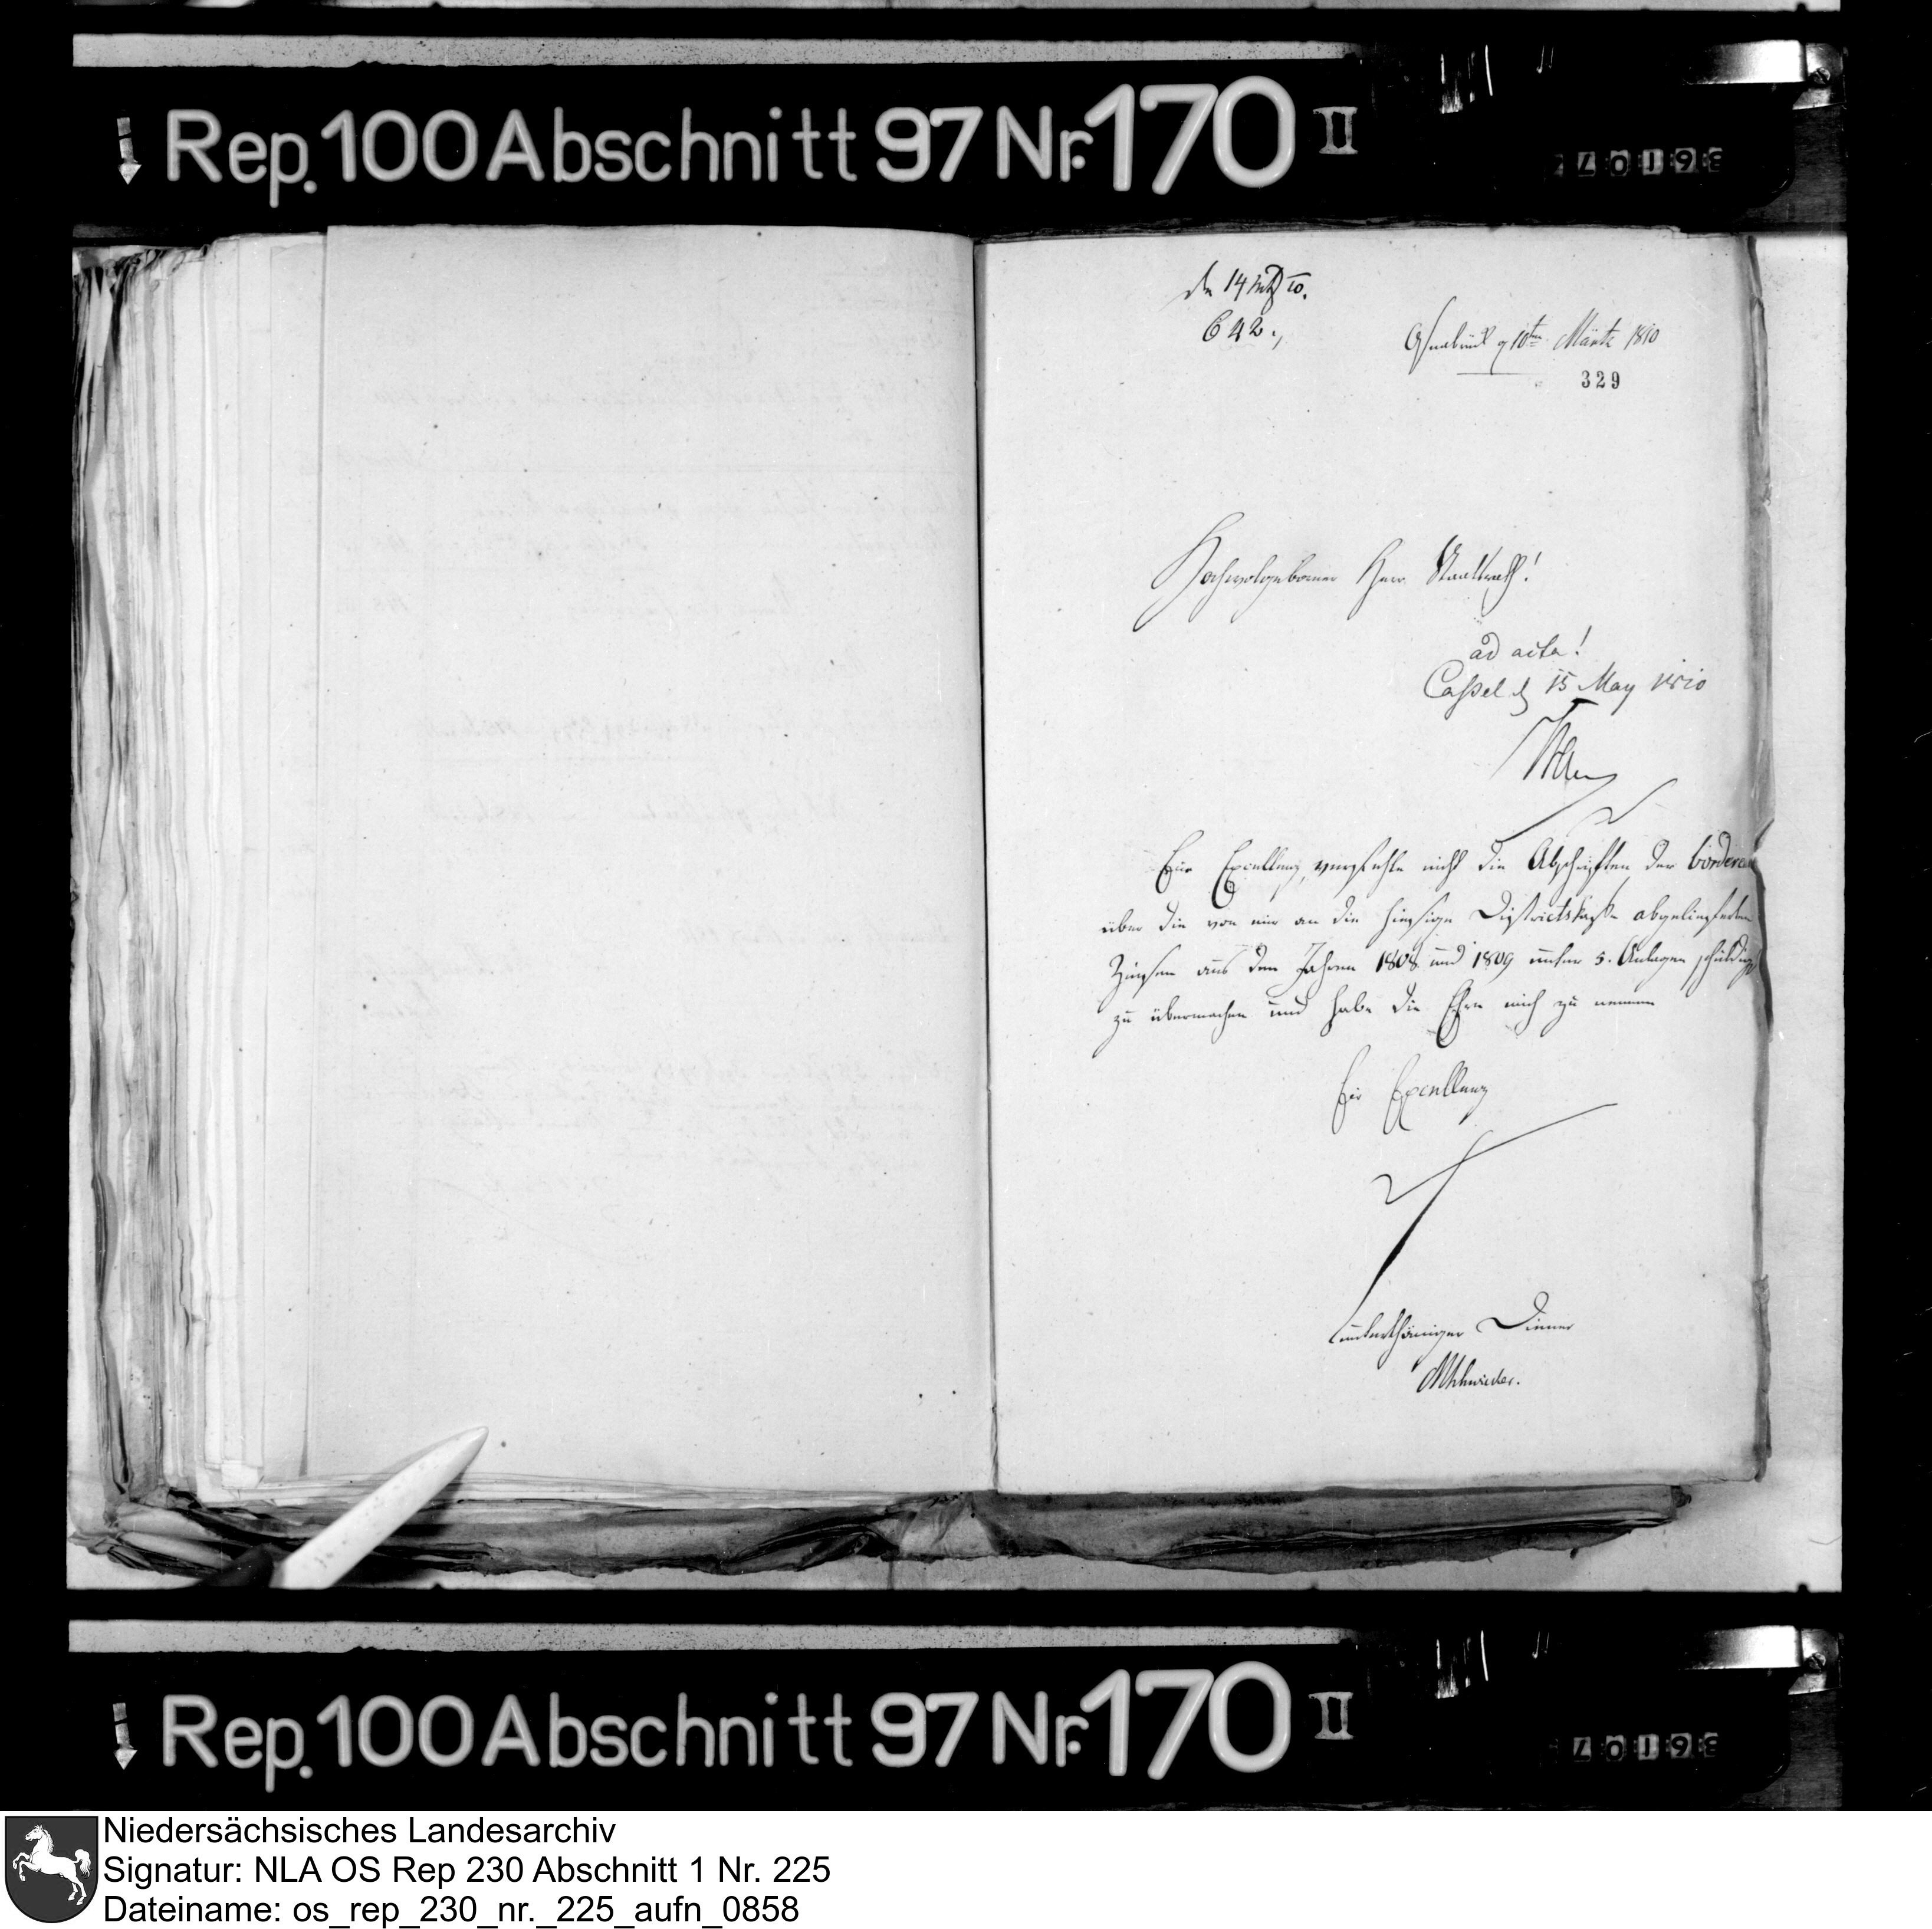 Rep. 100 Abschnitt 97 Nr. 170 II
36107
den 14 Mtz 10.
642.,
Osnabrück d 10ten Märtz 1810
329
Hochwolgeborner Herr Staatsrath!
ad acta!
Cassel d 15 May 1810
Eur Excellenz, verfehle nicht die Abschriften der borderau
über die von mir an die hiesige Districtskasse abgelieferten
Zinsen aus den Jahren 1808 und 1809 unter 5. Anlagen schuldigst
zu übermachen und habe die Ehre mich zu nennen
Eur Excellenz
unterthäniger Diener
Rep. 100 Abschnitt 97 Nr. 170 II
Niedersächsisches Landesarchiv
Signatur: NLA OS Rep 230 Abschnitt 1 Nr. 225
Dateiname: os_rep_230_nr._225_aufn_0858